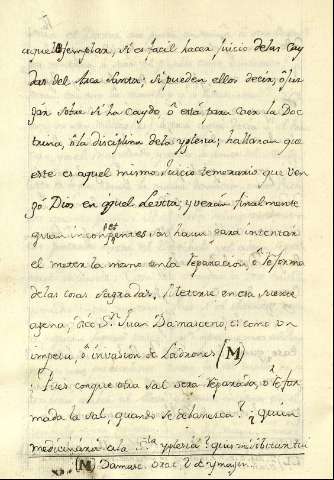 aquel exemplar, si es facil hacer juicio de las cay
das del Arca Santa; si pueden ellos decir, o juz
gar sobre si ha caydo, ô está para caer la Doc
trina, ô la disciplina de la yglesia; hallaran que
este es aquel mismo juicio temerario que ven
gó Dios en aquel Levita; y verán finalmente
quan incompetentes son hacia para intentar
el meter la mano en la reparacion, ô reforma
de las cosas sagradas,
agena, dice Sn. Juan Damasceno, es como un
impetu, ô invasion de Ladrones (M)
Pues conque otra sal será reparada, ô refor
mada la sal, quando se desbanesca? ¿quien
medicinará a la Sta. yglesia?
(M) Damasc. Orat. 2 de ymagin.